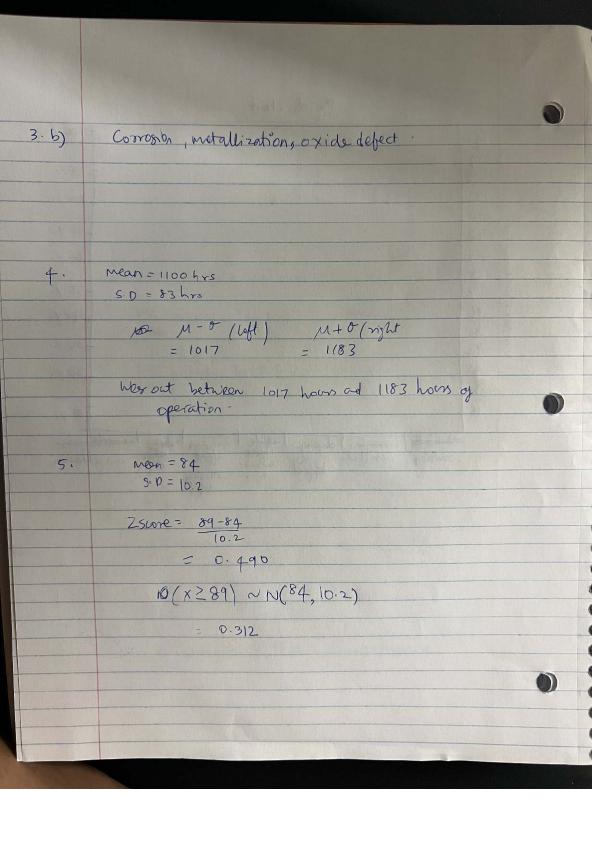 3. b) Corrosion, metallization, oxide defect.
4. Mean = 1100 hrs
S.D = 83 hrs
μ - σ (left) μ + σ (right
= 1017 = 1183
out between 1017 hours and 1183 hours of
operation.
5. mean = 84
S.D = 10.2
Z score = 89-84
10.2
= 0.490
P(x ≥ 89) ~ N(84, 10.2)
= 0.312